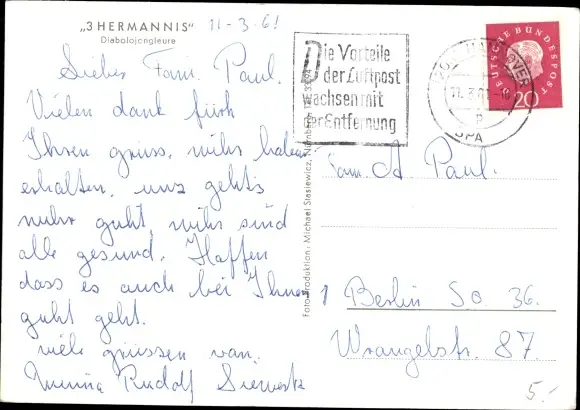 „3 HERMANNIS"
Diabolojongleure
11-3.61
Liebes Fam. Paul.
Vielen dank fürh
Ihren grüss, wihr haben
erhalten, uns gehts
nuhr guht, wihr sind
alle gesund. Haffen
dass es auch bei Ihnen
guht geht.
viele grüssen van.
Minna Rudolf
Foto-Produktion: Michael Stasiewicz, Nürnberg
Die Vorteile
der Luftpost
wachsen mit
der Entfernung
HANNOVER
11.3.61
P
DEUTSCHE BUNDESPOST
20
Fam. A Paul.
1 Berlin So. 36.
Wrangelstr. 87.
5.-